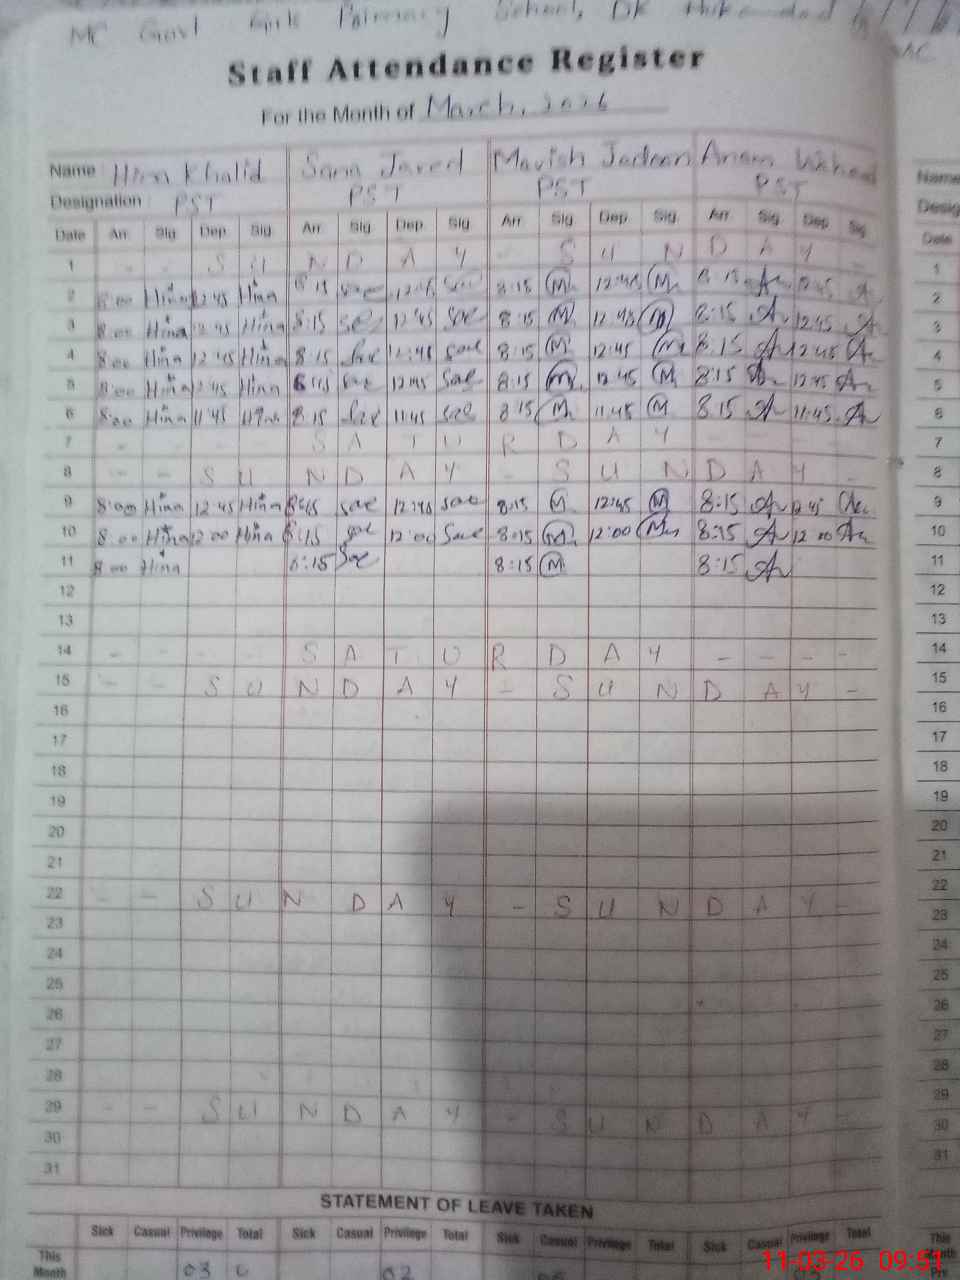 MC Govt Girls Primary School, DK
Staff Attendance Register
For the Month of March, 2026
Name Hina Khalid Sana Javed Mavish Jadoon Anam Waheed
Designation PST PST PST PST
Date Arr. Sig Dep. Sig. Arr. Sig Dep. Sig Arr. Sig Dep. Sig. Arr. Sig Dep Sig
1 - - S U N D A Y - S U N D A Y -
2 8:00 Hina 12:45 Hina 8:15 sae 8:15 M 12:45 M 8:15 12:45
3 8:00 Hina 12:45 Hina 8:15 sae 12:45 sae 8:15 M 12:45 M 8:15 12:45
4 8:00 Hina 12:45 Hina 8:15 sae 12:45 sae 8:15 M 12:45 M 8:15 12:45
5 8:00 Hina 12:45 Hina 8:15 sae 12:45 sae 8:15 M 12:45 M 8:15 12:45
6 8:00 Hina 11:45 Hina 8:15 sae 11:45 sae 8:15 M 11:45 M 8:15 11:45
7 - - - - S A T U R D A Y - - -
8 - - S U N D A Y - S U N D A Y -
9 8:00 Hina 12:45 Hina 8:15 sae 12:45 sae 8:15 M 12:45 M 8:15 12:45
10 8:00 Hina 12:00 Hina 8:15 sae 12:00 sae 8:15 M 12:00 M 8:15 12:00
11 8:00 Hina 8:15 sae 8:15 M 8:15
12
13
14 - - - - S A T U R D A Y - - - -
15 - - S U N D A Y - S U N D A Y -
16
17
18
19
20
21
22 - - S U N D A Y - S U N D A Y -
23
24
25
26
27
28
29 - - S U N D A Y - S U N D A Y -
30
31
STATEMENT OF LEAVE TAKEN
Sick Casual Privilege Total Sick Casual Privilege Total Sick Casual Privilege Total Sick Casual Privilege Total
This Month 03 02
Name
Desig
Date
1
2
3
4
5
6
7
8
9
10
11
12
13
14
15
16
17
18
19
20
21
22
23
24
25
26
27
28
29
30
31
This
Month
11-03-26 09:51